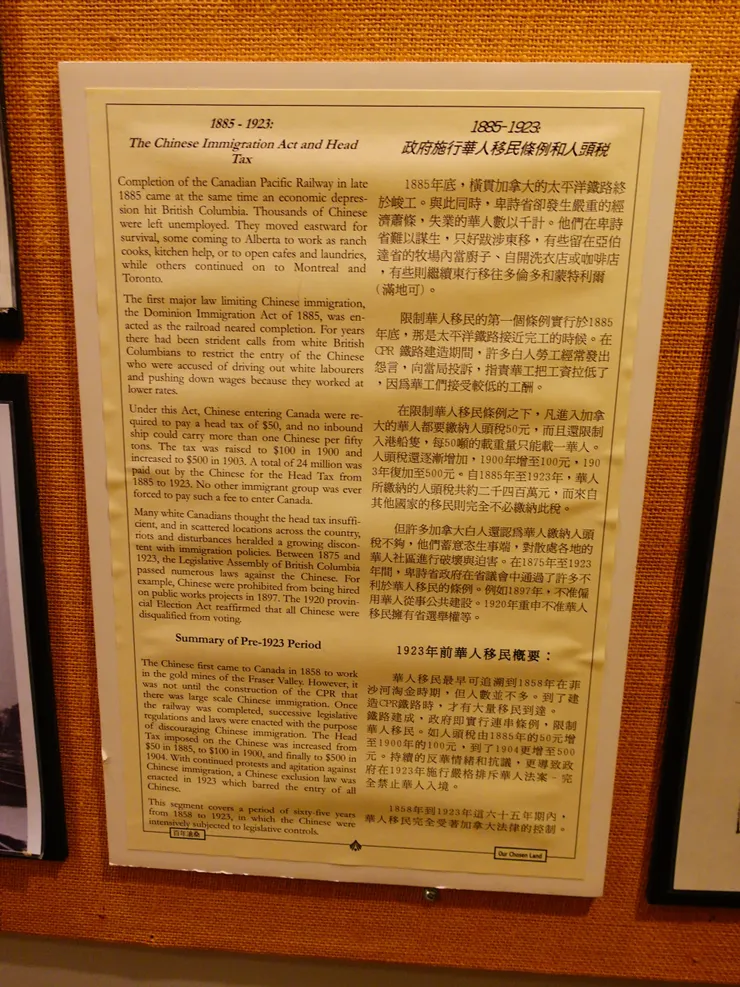 1885 - 1923:
The Chinese Immigration Act and Head
Tax
Completion of the Canadian Pacific Railway in late
1885 came at the same time an economic depres-
sion hit British Columbia. Thousands of Chinese
were left unemployed. They moved eastward for
survival, some coming to Alberta to work as ranch
cooks, kitchen help, or to open cafes and laundries,
while others continued on to Montreal and
Toronto.
The first major law limiting Chinese immigration,
the Dominion Immigration Act of 1885, was en-
acted as the railroad neared completion. For years
there had been strident calls from white British
Columbians to restrict the entry of the Chinese
who were accused of driving out white labourers
and pushing down wages because they worked at
lower rates.
Under this Act, Chinese entering Canada were re-
quired to pay a head tax of $50, and no inbound
ship could carry more than one Chinese per fifty
tons. The tax was raised to $100 in 1900 and
increased to $500 in 1903. A total of 24 million was
paid out by the Chinese for the Head Tax from
1885 to 1923. No other immigrant group was ever
forced to pay such a fee to enter Canada.
Many white Canadians thought the head tax insuffi-
cient, and in scattered locations across the country,
riots and disturbances heralded a growing discon-
tent with immigration policies. Between 1875 and
1923, the Legislative Assembly of British Columbia
passed numerous laws against the Chinese. For
example, Chinese were prohibited from being hired
on public works projects in 1897. The 1920 provin-
cial Election Act reaffirmed that all Chinese were
disqualified from voting.
Summary of Pre-1923 Period
The Chinese first came to Canada in 1858 to work
in the gold mines of the Fraser Valley. However, it
was not until the construction of the CPR that
there was large scale Chinese immigration. Once
the railway was completed, successive legislative
regulations and laws were enacted with the purpose
of discouraging Chinese immigration. The Head
Tax imposed on the Chinese was increased from
$50 in 1885, to $100 in 1900, and finally to $500 in
1904. With continued protests and agitation against
Chinese immigration, a Chinese exclusion law was
enacted in 1923 which barred the entry of all
Chinese.
This segment covers a period of sixty-five years
from 1858 to 1923, in which the Chinese were
intensively subjected to legislative controls.
1885-1923:
政府施行華人移民條例和人頭稅
1885年底，橫貫加拿大的太平洋鐵路終
於峻工。與此同時，卑詩省卻發生嚴重的經
濟蕭條，失業的華人數以千計。他們在卑詩
省難以謀生，只好跋涉東移，有些留在亞伯
達省的牧場內當廚子、自開洗衣店或咖啡店
，有些則繼續東行移往多倫多和蒙特利爾
（滿地可）。
限制華人移民的第一個條例實行於1885
年底，那是太平洋鐵路接近完工的時候。在
CPR 鐵路建造期間，許多白人勞工經常發出
怨言，向當局投訴，指責華工把工資拉低了
，因爲華工們接受較低的工酬。
在限制華人移民條例之下，凡進入加拿
大的華人都要繳納人頭稅50元，而且還限制
入港船隻，每50噸的載重量只能載一華人。
人頭稅還逐漸增加，1900年增至100元，190
3年復加至500元。自1885年至1923年，華人
所繳納的人頭稅共約二千四百萬元，而來自
其他國家的移民則完全不必繳納此稅。
但許多加拿大白人還認爲華人繳納人頭
稅不夠，他們蓄意恣生事端，對散處各地的
華人社區進行破壞與迫害。在1875年至1923
年間，卑詩省政府在省議會中通過了許多不
利於華人移民的條例。例如1897年，不准僱
用華人從事公共建設。1920年重申不准華人
移民擁有省選舉權等。
1923年前華人移民概要：
華人移民最早可追溯到1858年在菲
沙河淘金時期，但人數並不多。到了建
造CPR鐵路時，才有大量移民到達。
鐵路建成，政府即實行連串條例，限制
華人移民。如人頭稅由1885年的50元增
至1900年的100元，到了1904更增至500
元。持續的反華情緒和抗議，更導致政
府在1923年施行嚴格排斥華人法案－完
全禁止華人入境。
1858年到1923年這六十五年期內，
華人移民完全受著加拿大法律的控制。
百年滄桑
Our Chosen Land